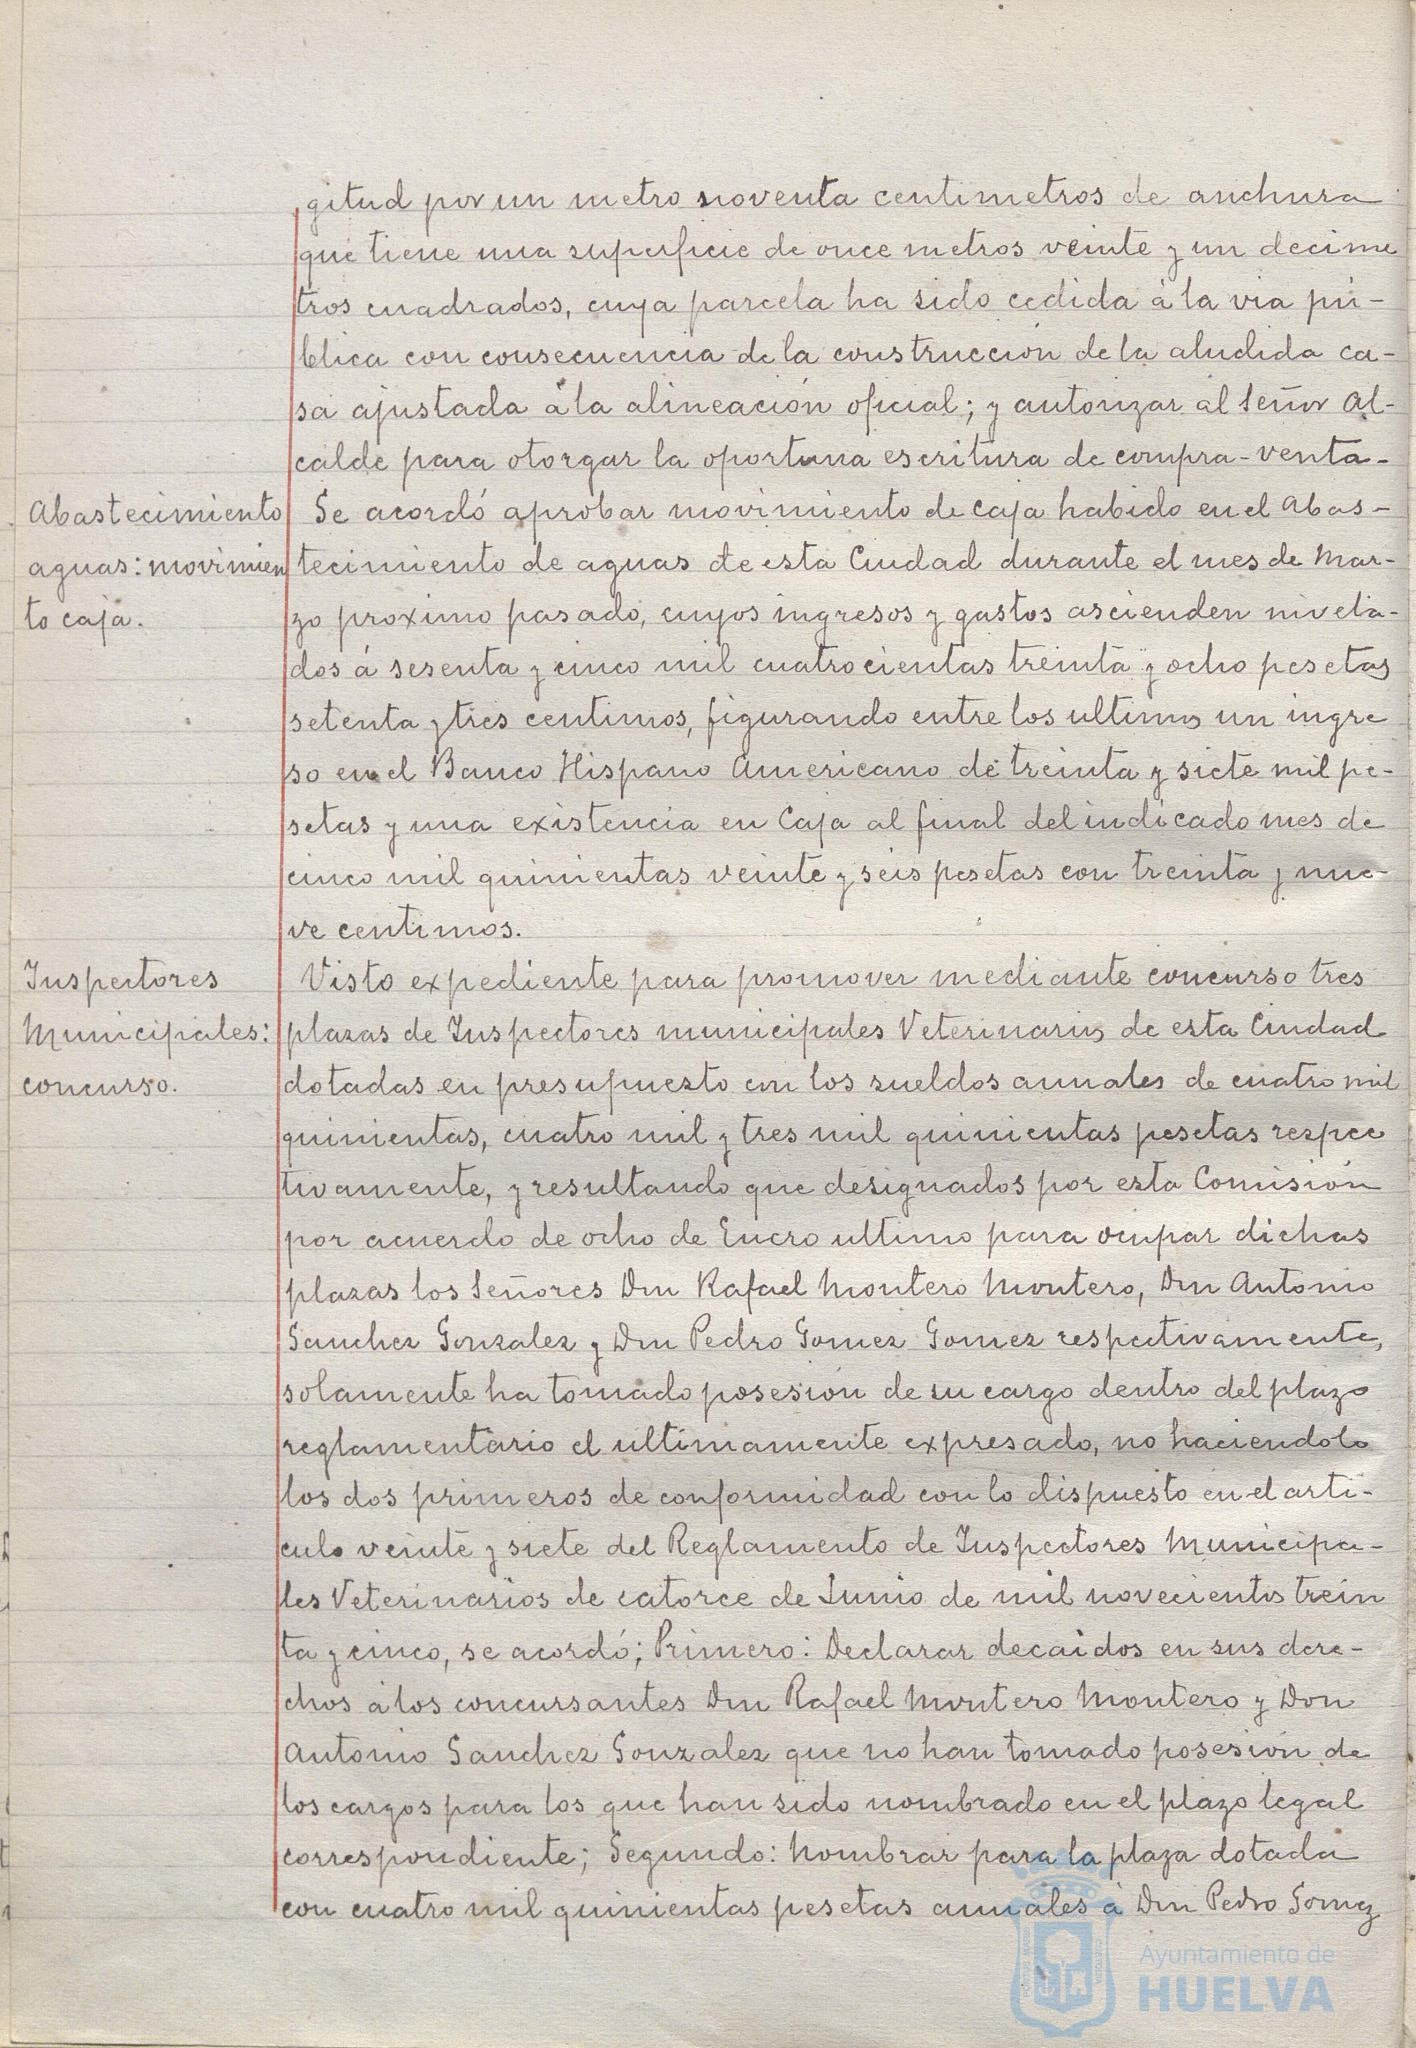 gitud por un metro noventa centimetros de anchura
que tiene una superficie de once metros veinte y un decime
tros cuadrados, cuya parcela ha sido cedida á la via pú-
blica con consecuencia de la construcción de la aludida ca-
sa ajustada á la alineación oficial; y autorizar al Señor Al-
calde para otorgar la oportuna escritura de compra-venta-
Abastecimiento
aguas: movimien
to caja.
Se acordó aprobar movimiento de caja habido en el Abas-
tecimiento de aguas de esta Ciudad durante el mes de Mar-
zo proximo pasado, cuyos ingresos y gastos ascienden nivela-
dos á sesenta y cinco mil cuatrocientas treinta y ocho pesetas
setenta y tres centimos, figurando entre los ultimos un ingre
so en el Banco Hispano Americano de treinta y siete mil pe-
setas y una existencia en Caja al final del indicado mes de
cinco mil quinientas veinte y seis pesetas con treinta y nue-
ve centimos.
Inspectores
Municipales:
concurso.
Visto expediente para promover mediante concurso tres
plazas de Inspectores municipales Veterinarios de esta Ciudad
dotadas en presupuesto con los sueldos anuales de cuatro mil
quinientas, cuatro mil y tres mil quinientas pesetas respec
tivamente, y resultando que designados por esta Comisión
por acuerdo de ocho de Enero ultimo para ocupar dichas
plazas los Señores Don Rafael Montero Montero, Don Antonio
Sanchez Gonzalez y Don Pedro Gomez Gomez respectivamente,
solamente ha tomado posesión de su cargo dentro del plazo
reglamentario el ultimamente expresado, no haciendolo
los dos primeros de conformidad con lo dispuesto en el arti-
culo veinte y siete del Reglamento de Inspectores Municipa-
les Veterinarios de catorce de Junio de mil novecientos trein
ta y cinco, se acordó; Primero: Declarar decaidos en sus dere-
chos á los concursantes Don Rafael Montero Montero y Don
Antonio Sanchez Gonzalez que no han tomado posesión de
los cargos para los que han sido nombrado en el plazo legal
correspondiente; Segundo: Nombrar para la plaza dotada
con cuatro mil quinientas pesetas anuales á Don Pedro Gomez
Ayuntamiento de
HUELVA